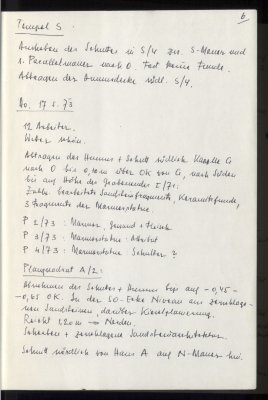 6
Tempel S.
Ausheben des Schuttes in S/4 zw. S-Mauer und
1. Parallelmauer nach O. Fast keine Funde.
Abtragen der Humusdecke südl. S/4.
Do. 17.5.73
12 Arbeiter.
Wetter schön.
Abtragen des Humus + Schutt südlich Kapelle G
nach O bis 0,10 m über OK von G, nach Süden
bis auf Höhe des Grabenrandes I/71:
Zahlr. bearbeitete Sandsteinfragmente, Keramikfunde,
3 Fragmente der Marmorstatue.
P 2/73 : Marmor, Gewand + Fleisch
P 3/73 : Marmorstatue:
P 4/73 : Marmorstatue Schulter ?
Planquadrat A/2:
Abnehmen des Schuttes + Humus bis auf -0,45-
-0,65 OK. In der SO-Ecke Niveau aus zerschlage-
nen Sandsteinen, darüber Kieselplanierung.
Reicht 1,20 m → Norden.
Scherben + zerschlagene
Schnitt nördlich von Haus A auf N-Mauer hin.